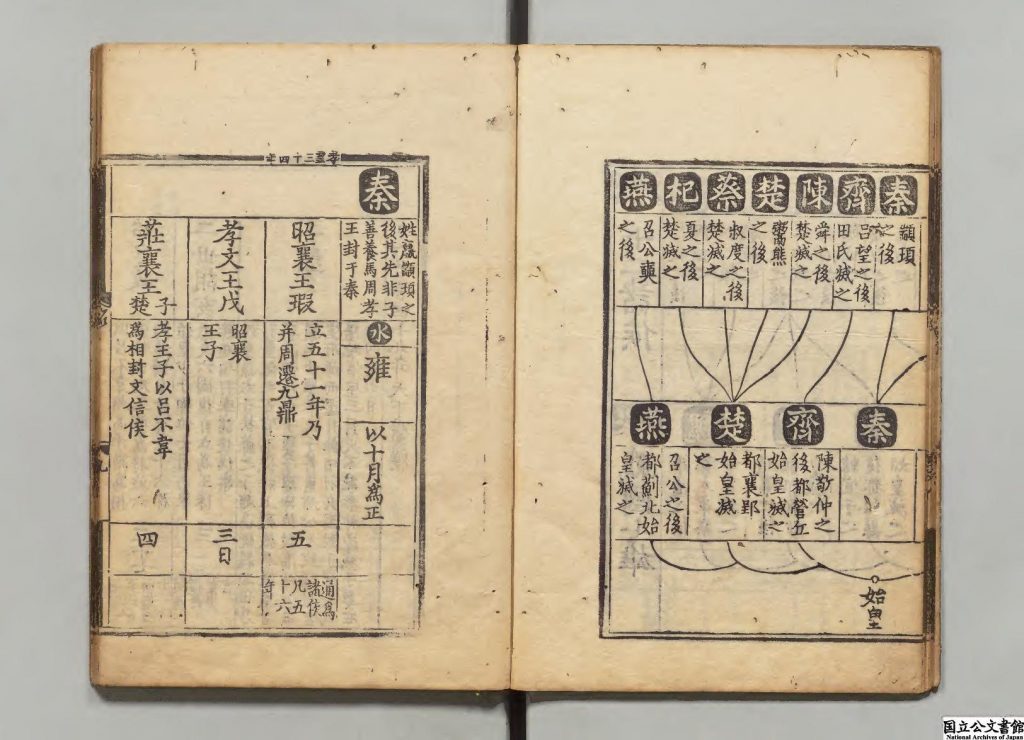 秦
齊
陳
楚
蔡
杞
燕
顓頊
之後
呂望之後
田氏滅之
舜之後
楚滅之
鬻熊
之後
叔度之後
楚滅之
夏之後
楚滅之
召公奭
之後
秦
齊
楚
燕
陳敬仲之
後都營丘
始皇滅之
都襄郢
始皇滅
之
召公之後
都薊北始
皇滅之
始皇
秦
姓嬴顓頊之
後其先非子
善養馬周孝
王封于秦
水
雍
以十月為正
昭襄王瑕
立五十一年乃
并周遷九鼎
五
通為
諸侯
凡五
十六
年
孝文王戊
昭襄
王子
三日
莊襄王
子
楚
孝王子以呂不韋
為相封文信侯
四
国立公文書館
National Archives of Japan